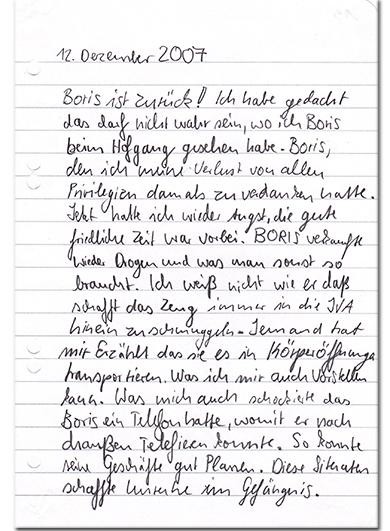 12. Dezember 2007
Boris ist zurück!! Ich habe gedacht
das darf nicht wahr sein, wo ich Boris
beim Hofgang gesehen habe. Boris,
den ich meine Verlust von allen
Privilegien damals zu verdanken hatte.
Jetzt hatte ich wieder Angst, die gute
friedliche Zeit war vorbei. BORIS verkaufte
wieder Drogen und was man sonst so
braucht. Ich weiß nicht wie er daß
schafft das Zeug immer in die JVA
hinein zu schmuggeln. Jemand hat
mir Erzählt das sie es in Körperöffnungen
transportieren. Was ich mir auch Vorstellen
kann. Was mich auch schockierte das
Boris ein Telefon hatte, womit er nach
draußen Telefieren konnte. So konnte
seine Geschäfte gut Planen. Diese
schaffte Unruhe im Gefängnis.